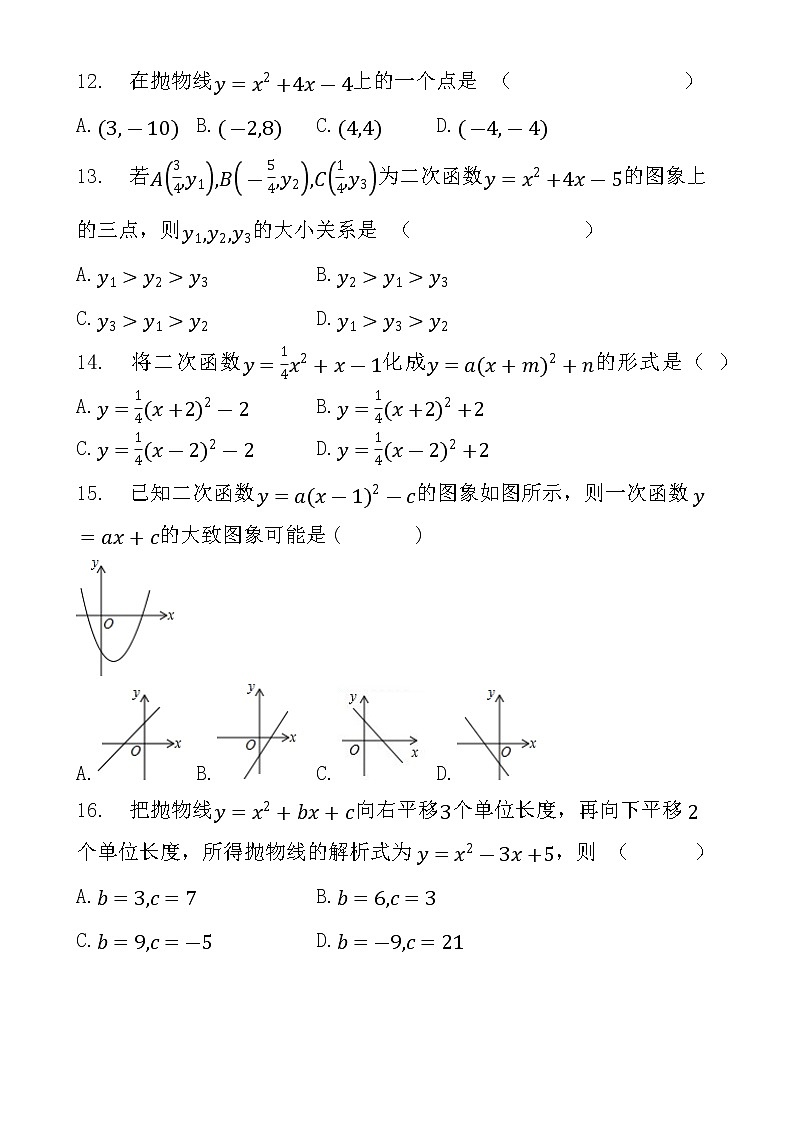 12. 在抛物线y=x²+4x-4上的一个点是 （ ）
A.(3,-10) B.(-2,8) C.(4,4) D.(-4,-4)
13. 若A(3/4,y₁),B(-5/4,y₂),C(1/4,y₃)为二次函数y=x²+4x-5的图象上
的三点，则y₁,y₂,y₃的大小关系是 （ ）
A.y₁>y₂>y₃ B.y₂>y₁>y₃
C.y₃>y₁>y₂ D.y₁>y₃>y₂
14. 将二次函数y=1/4x²+x-1化成y=a(x+m)²+n的形式是（ ）
A.y=1/4(x+2)²-2 B.y=1/4(x+2)²+2
C.y=1/4(x-2)²-2 D.y=1/4(x-2)²+2
15. 已知二次函数y=a(x-1)²-c的图象如图所示，则一次函数y
=ax+c的大致图象可能是( )
y
O x
y y y y
O x O x O x O x
A. B. C. D.
16. 把抛物线y=x²+bx+c向右平移3个单位长度，再向下平移2
个单位长度，所得抛物线的解析式为y=x²-3x+5，则 （ ）
A.b=3,c=7 B.b=6,c=3
C.b=9,c=-5 D.b=-9,c=21